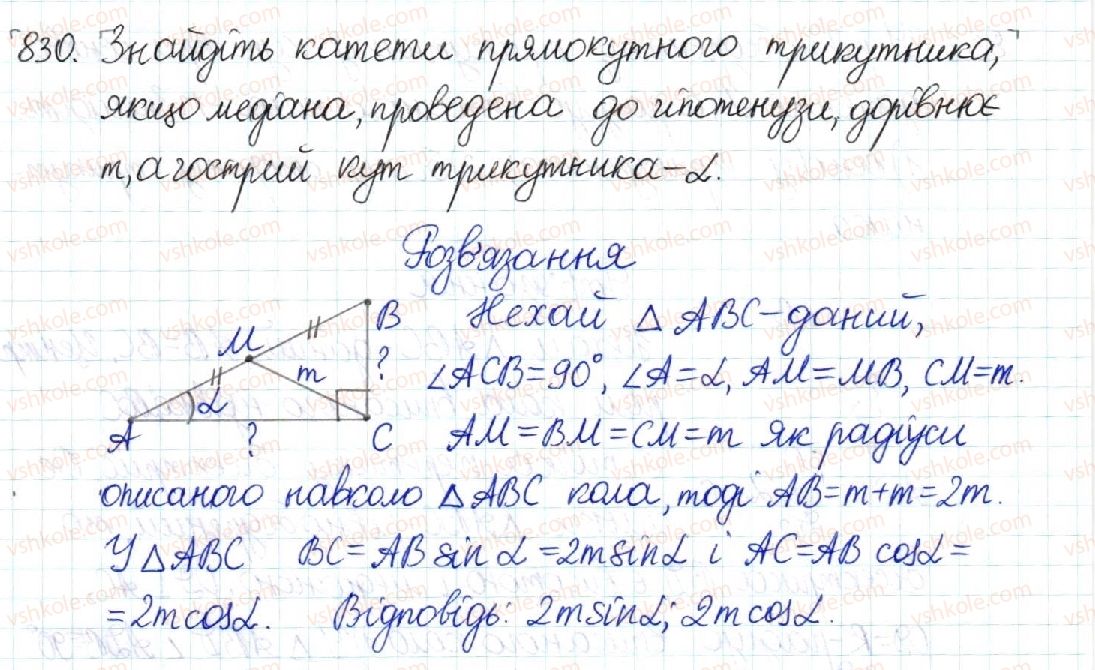 830. Знайдіть катети прямокутного трикутника,
якщо медіана, проведена до гіпотенузи, дорівнює
m, а гострий кут трикутника – α.
Розв'язання
Нехай △ ABC – даний,
∠ACB = 90°, ∠A = α, AM = MB, CM = m.
AM = BM = CM = m як радіуси
описаного навколо △ ABC кола, тоді AB = m + m = 2m.
У △ ABC BC = AB sin α = 2m sin α і AC = AB cos α =
= 2m cos α. Відповідь: 2m sin α; 2m cos α.
B
M
?
m
α
A
?
C
vshkole.com